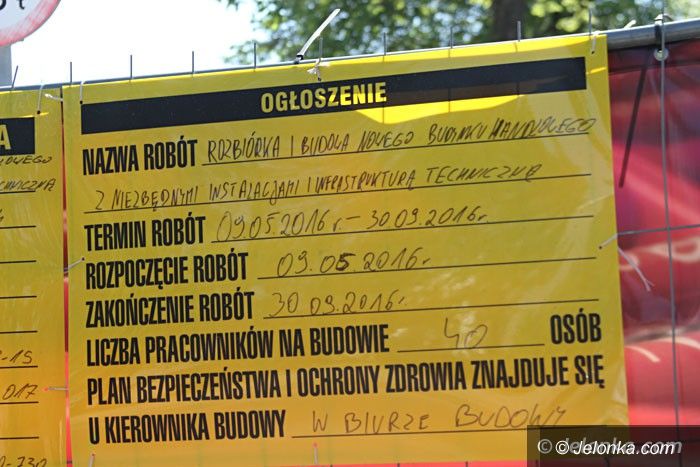 OGŁOSZENIE
NAZWA ROBÓT ROZBIÓRKA I BUDOWA NOWEGO BUDYNKU HANDLOWEGO
Z NIEZBĘDNYMI INSTALACJAMI I INFRASTRUKTURĄ TECHNICZNĄ
TERMIN ROBÓT 09.05.2016r. – 30.09.2016r
ROZPOCZĘCIE ROBÓT 09.05.2016r.
ZAKOŃCZENIE ROBÓT 30.09.2016r.
LICZBA PRACOWNIKÓW NA BUDOWIE 40 OSÓB
PLAN BEZPIECZEŃSTWA I OCHRONY ZDROWIA ZNAJDUJE SIĘ
U KIEROWNIKA BUDOWY W BIURZE BUDOWY
© Jelonka.com